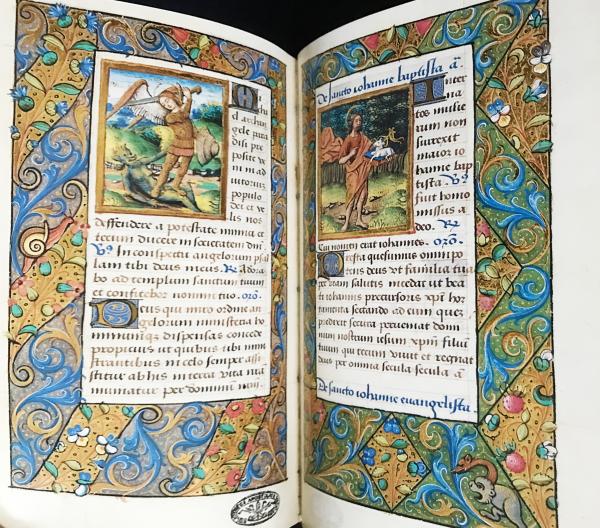 Mi
chael archan
gele para
disi pre
posite ve
ni in ad
iutoriuz
populo
dei et ve
lis nos
deffendere a potestate inimici et
tecum ducere in societatem dni.
V9 In conspectu angelorum psal
lam tibi deus meus. R Adora
bo ad templum sanctum tuum
et confitebor nomini tuo. oro.
Deus qui miro ordine an
gelorum ministeria ho
minumqz dispensas concede
propicius ut quibus tibi mini
strantibus in celo semper assi
stitur ab his in terra vita nra
muniatur per dominum nrm.
De sancto iohanne baptista a.
Inter
na
tos mulie
rum non
surrexit
maior io
hanne bap
tista. V9
fuit homo
missus a
deo. R
Cui nomen erat iohannes. oro.
Presta quesumus omnipo
tens deus ut familia tua
per viam salutis incedat ut bea
ti iohannis precursoris xpi hor
tamenta sectando ad eum quez
predixit secura perveniat domi
num nostrum iesum xpm filiu
tuum qui tecum vivit et regnat
deus per omnia secula secula a.
De sancto iohanne euangelista.